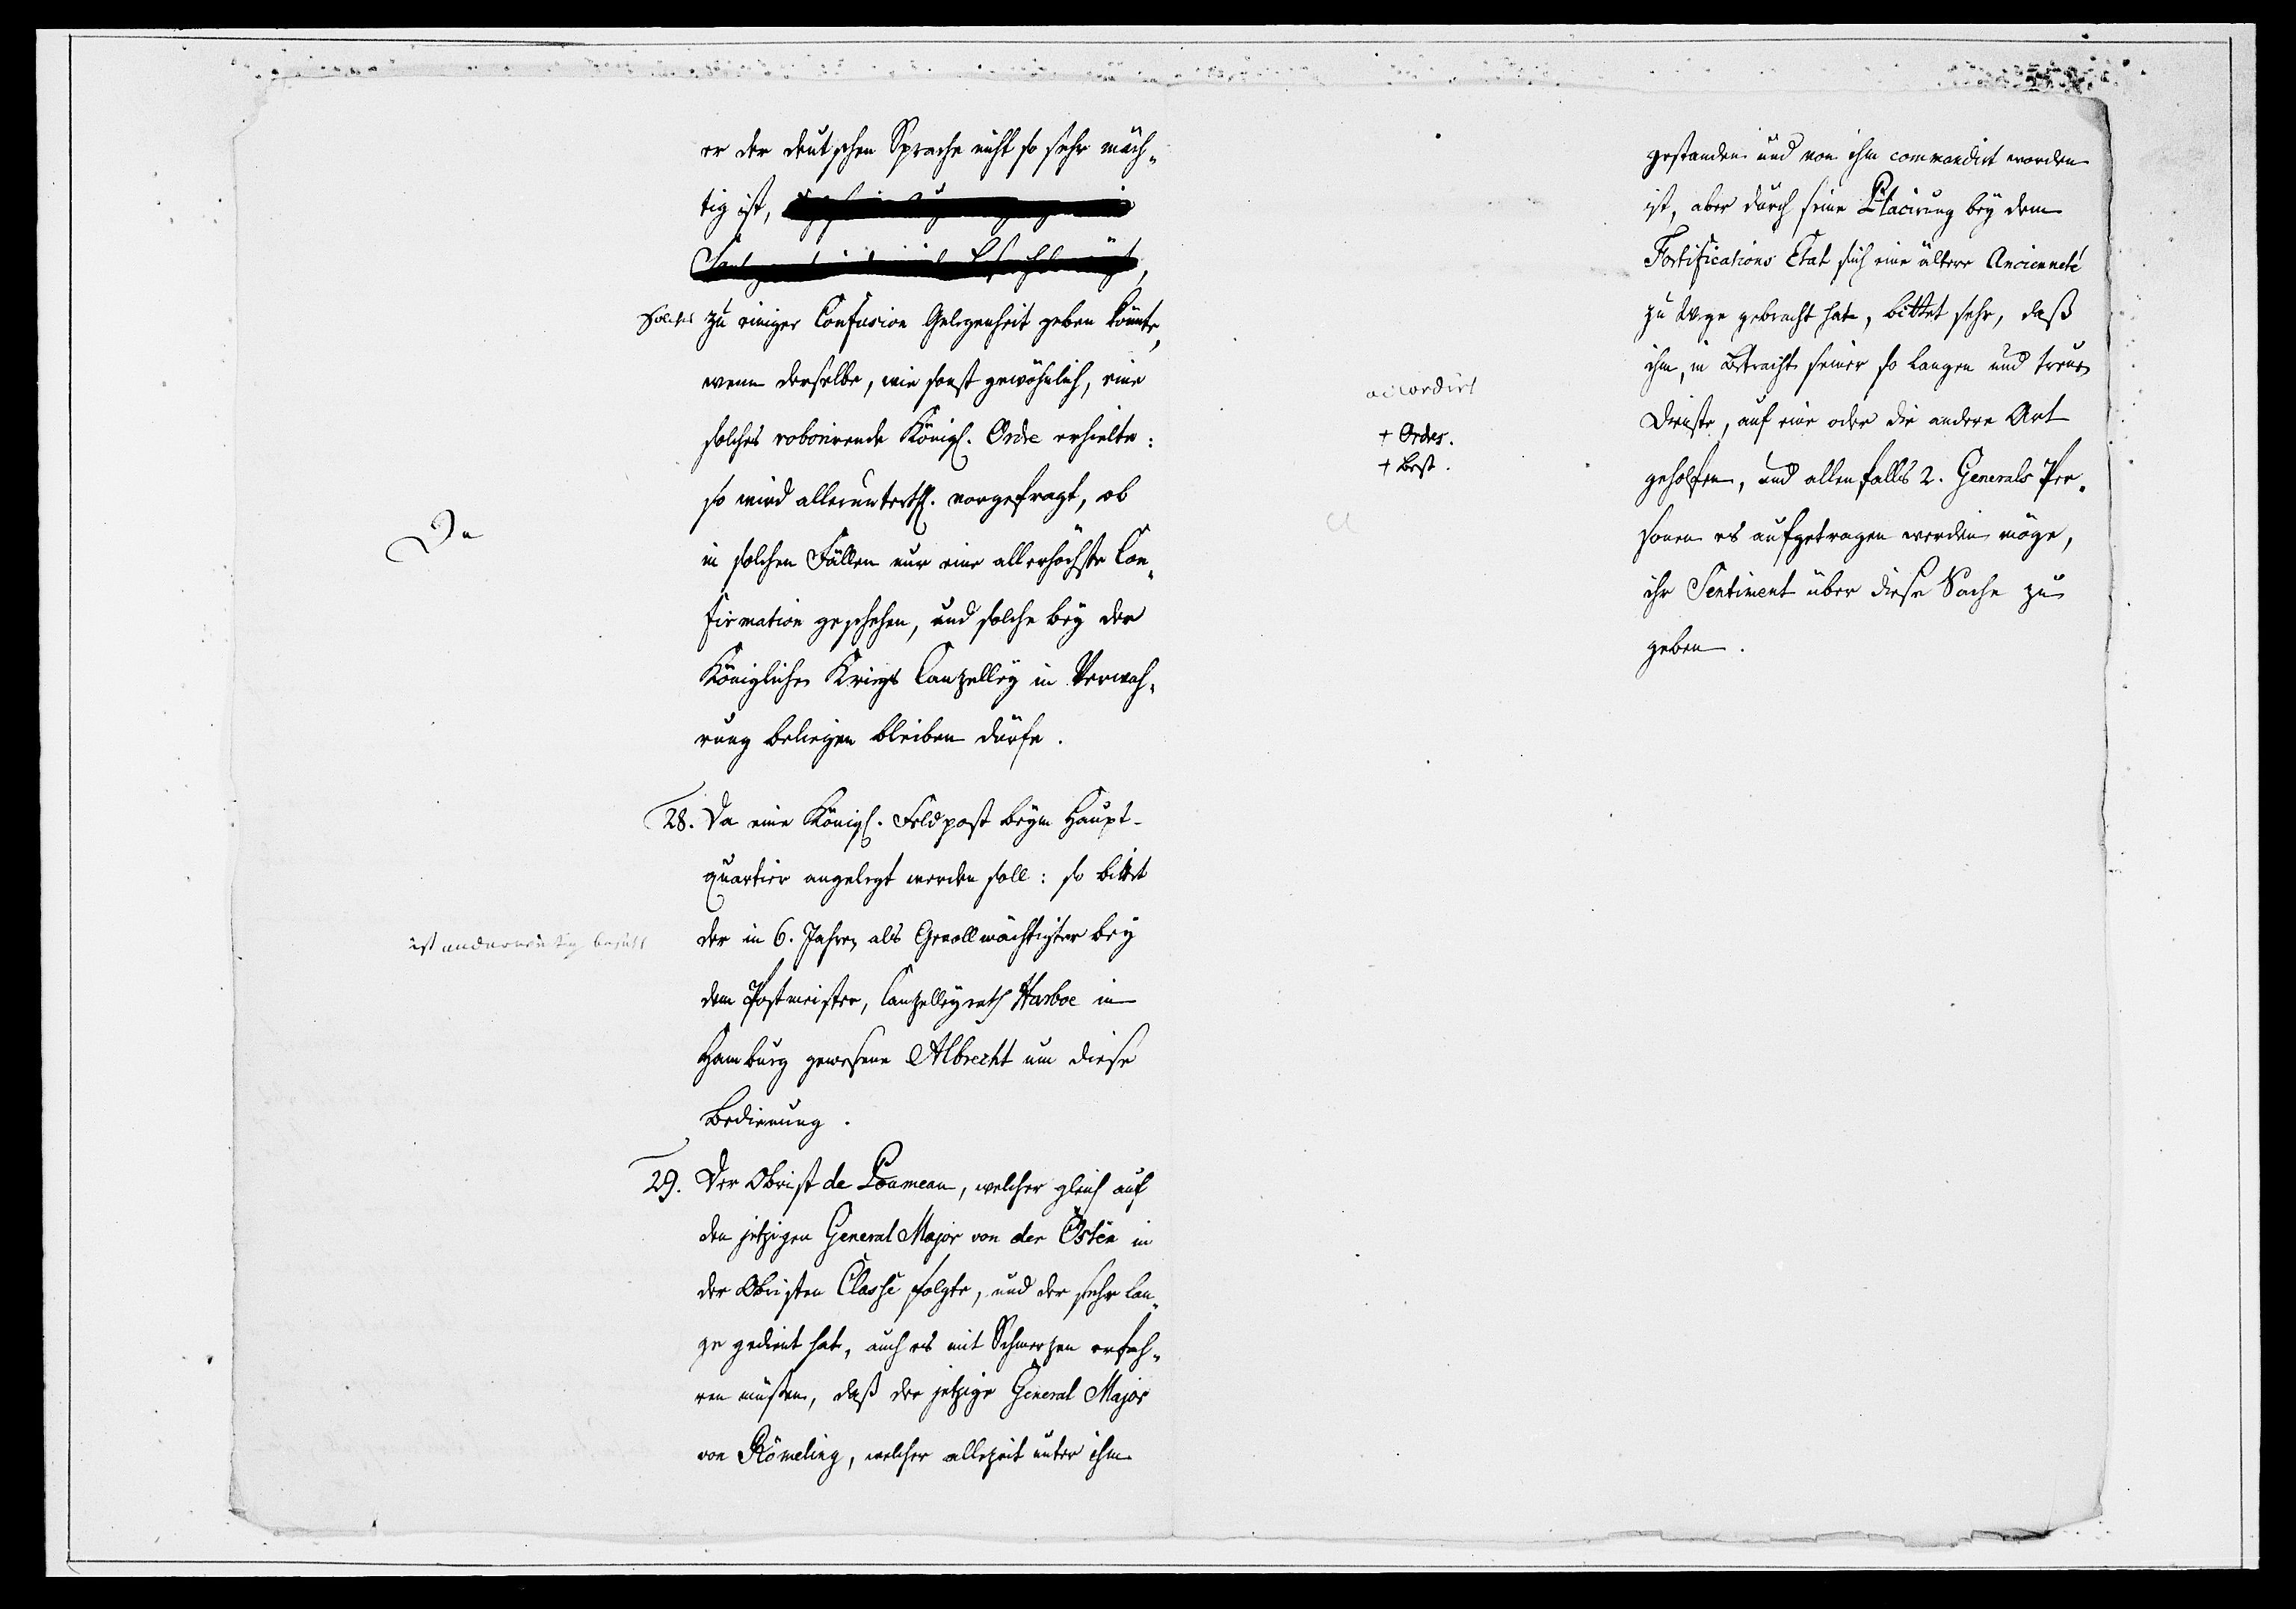 er der deutschen Sprache nicht so sehr mäch-
tig ist,
solches zu einiger Confusion Gelegenheit geben könnte,
wenn derselbe, wie sonst gewöhnlich, eine
solches roborirende Königl. Ordre erhielte:
so wird alleruntertgst. vorgefragt, ob
in solchen Fällen nur eine allerhöchste Con-
firmation geschehen, und solche bey der
Königlichen Kriegs Canzelley in Verwah-
rung beliegen bleiben dürfe.
Ja
28. Da eine Königl. Feldpost beym Haupt-
quartier angelegt werden soll: so bittet
der in 6. Jahren als Gevollmächtigter bey
dem Postmeister, Canzelleyrath Harboe in
Hamburg gewesene Albrecht um diese
Bedienung.
ist anderweitig besetzt
29. Der Obrist de Loumeau, welcher gleich auf
den jetzigen General Major von der Osten in
der Obristen Classe folgte, und der sehr lan-
ge gedient hat, auch es mit Schmerzen erfah-
ren müßen, daß der jetzige General Major
von Römeling, welcher allezeit unter ihm
gestanden und von ihm commandirt worden
ist, aber durch seine Placirung bey dem
Fortifications Etat sich eine ältere Ancienneté
zu Wege gebracht hat, bittet sehr, daß
ihm, in Betracht seiner so langen und treuen
Dienste, auf eine oder die andere Art
geholfen, und allenfalls 2. Generals Per-
sonen es aufgetragen werden möge,
ihr Sentiment über diese Sache zu
geben.
accordirt
+ Ordres.
+ Best.